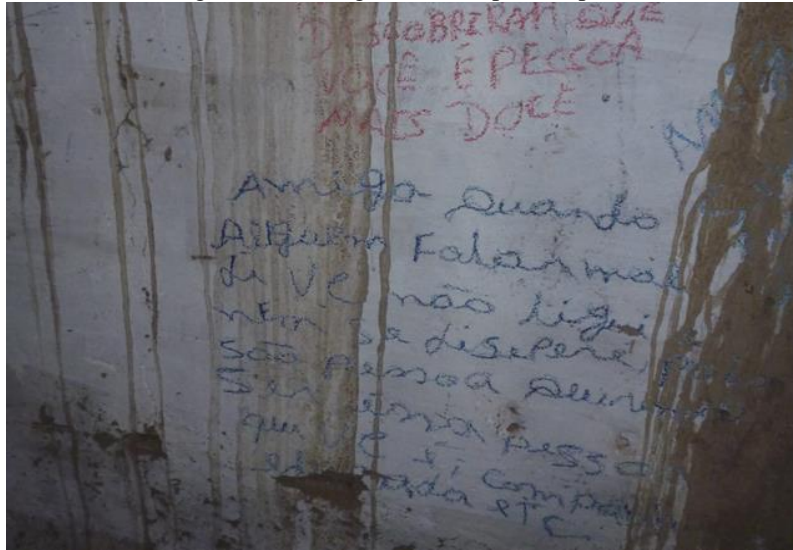 DESCOBRIRAM QUE
VOCÊ É PESSOA
MAIS DOCE
Amiga Quando
Alguem Falar mal
di vc não ligui e
nem se disepere, pois
são pessoa
Ser essa pessoa
que vc é,
etc